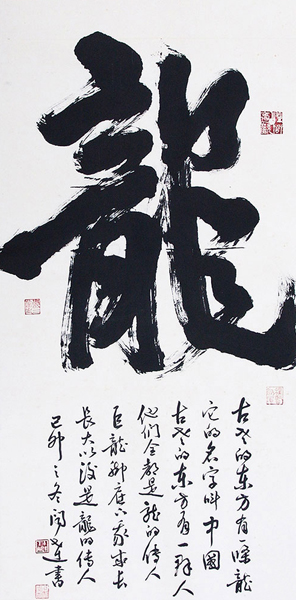 龍
古老的東方有一條龍
它的名字叫中國
古老的東方有一群人
他们全都是龙的传人
巨龍脚底下我成长
長大以後是龍的传人
己卯之冬 書